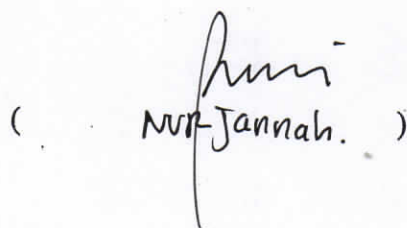 ( NUR Jannah. )